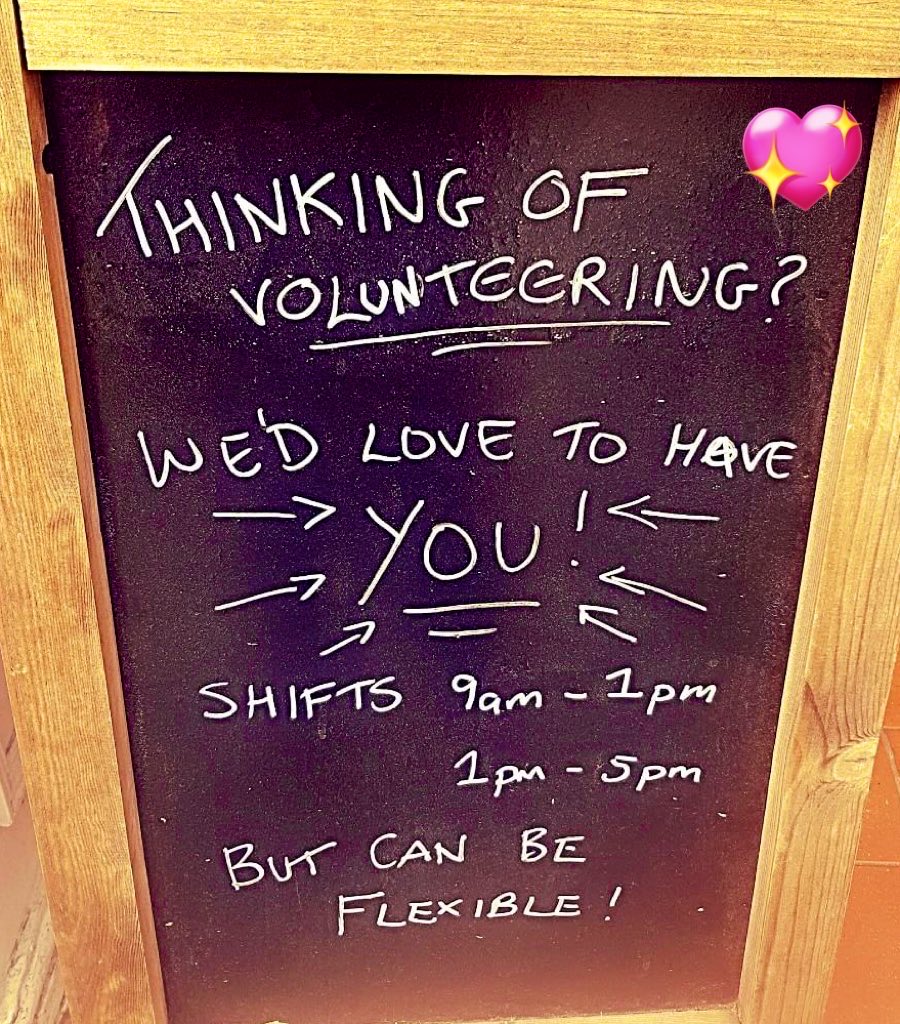 THINKING OF
VOLUNTEERING?
WE'D LOVE TO HAVE
YOU!
SHIFTS 9am - 1pm
1pm - 5pm
BUT CAN BE
FLEXIBLE!